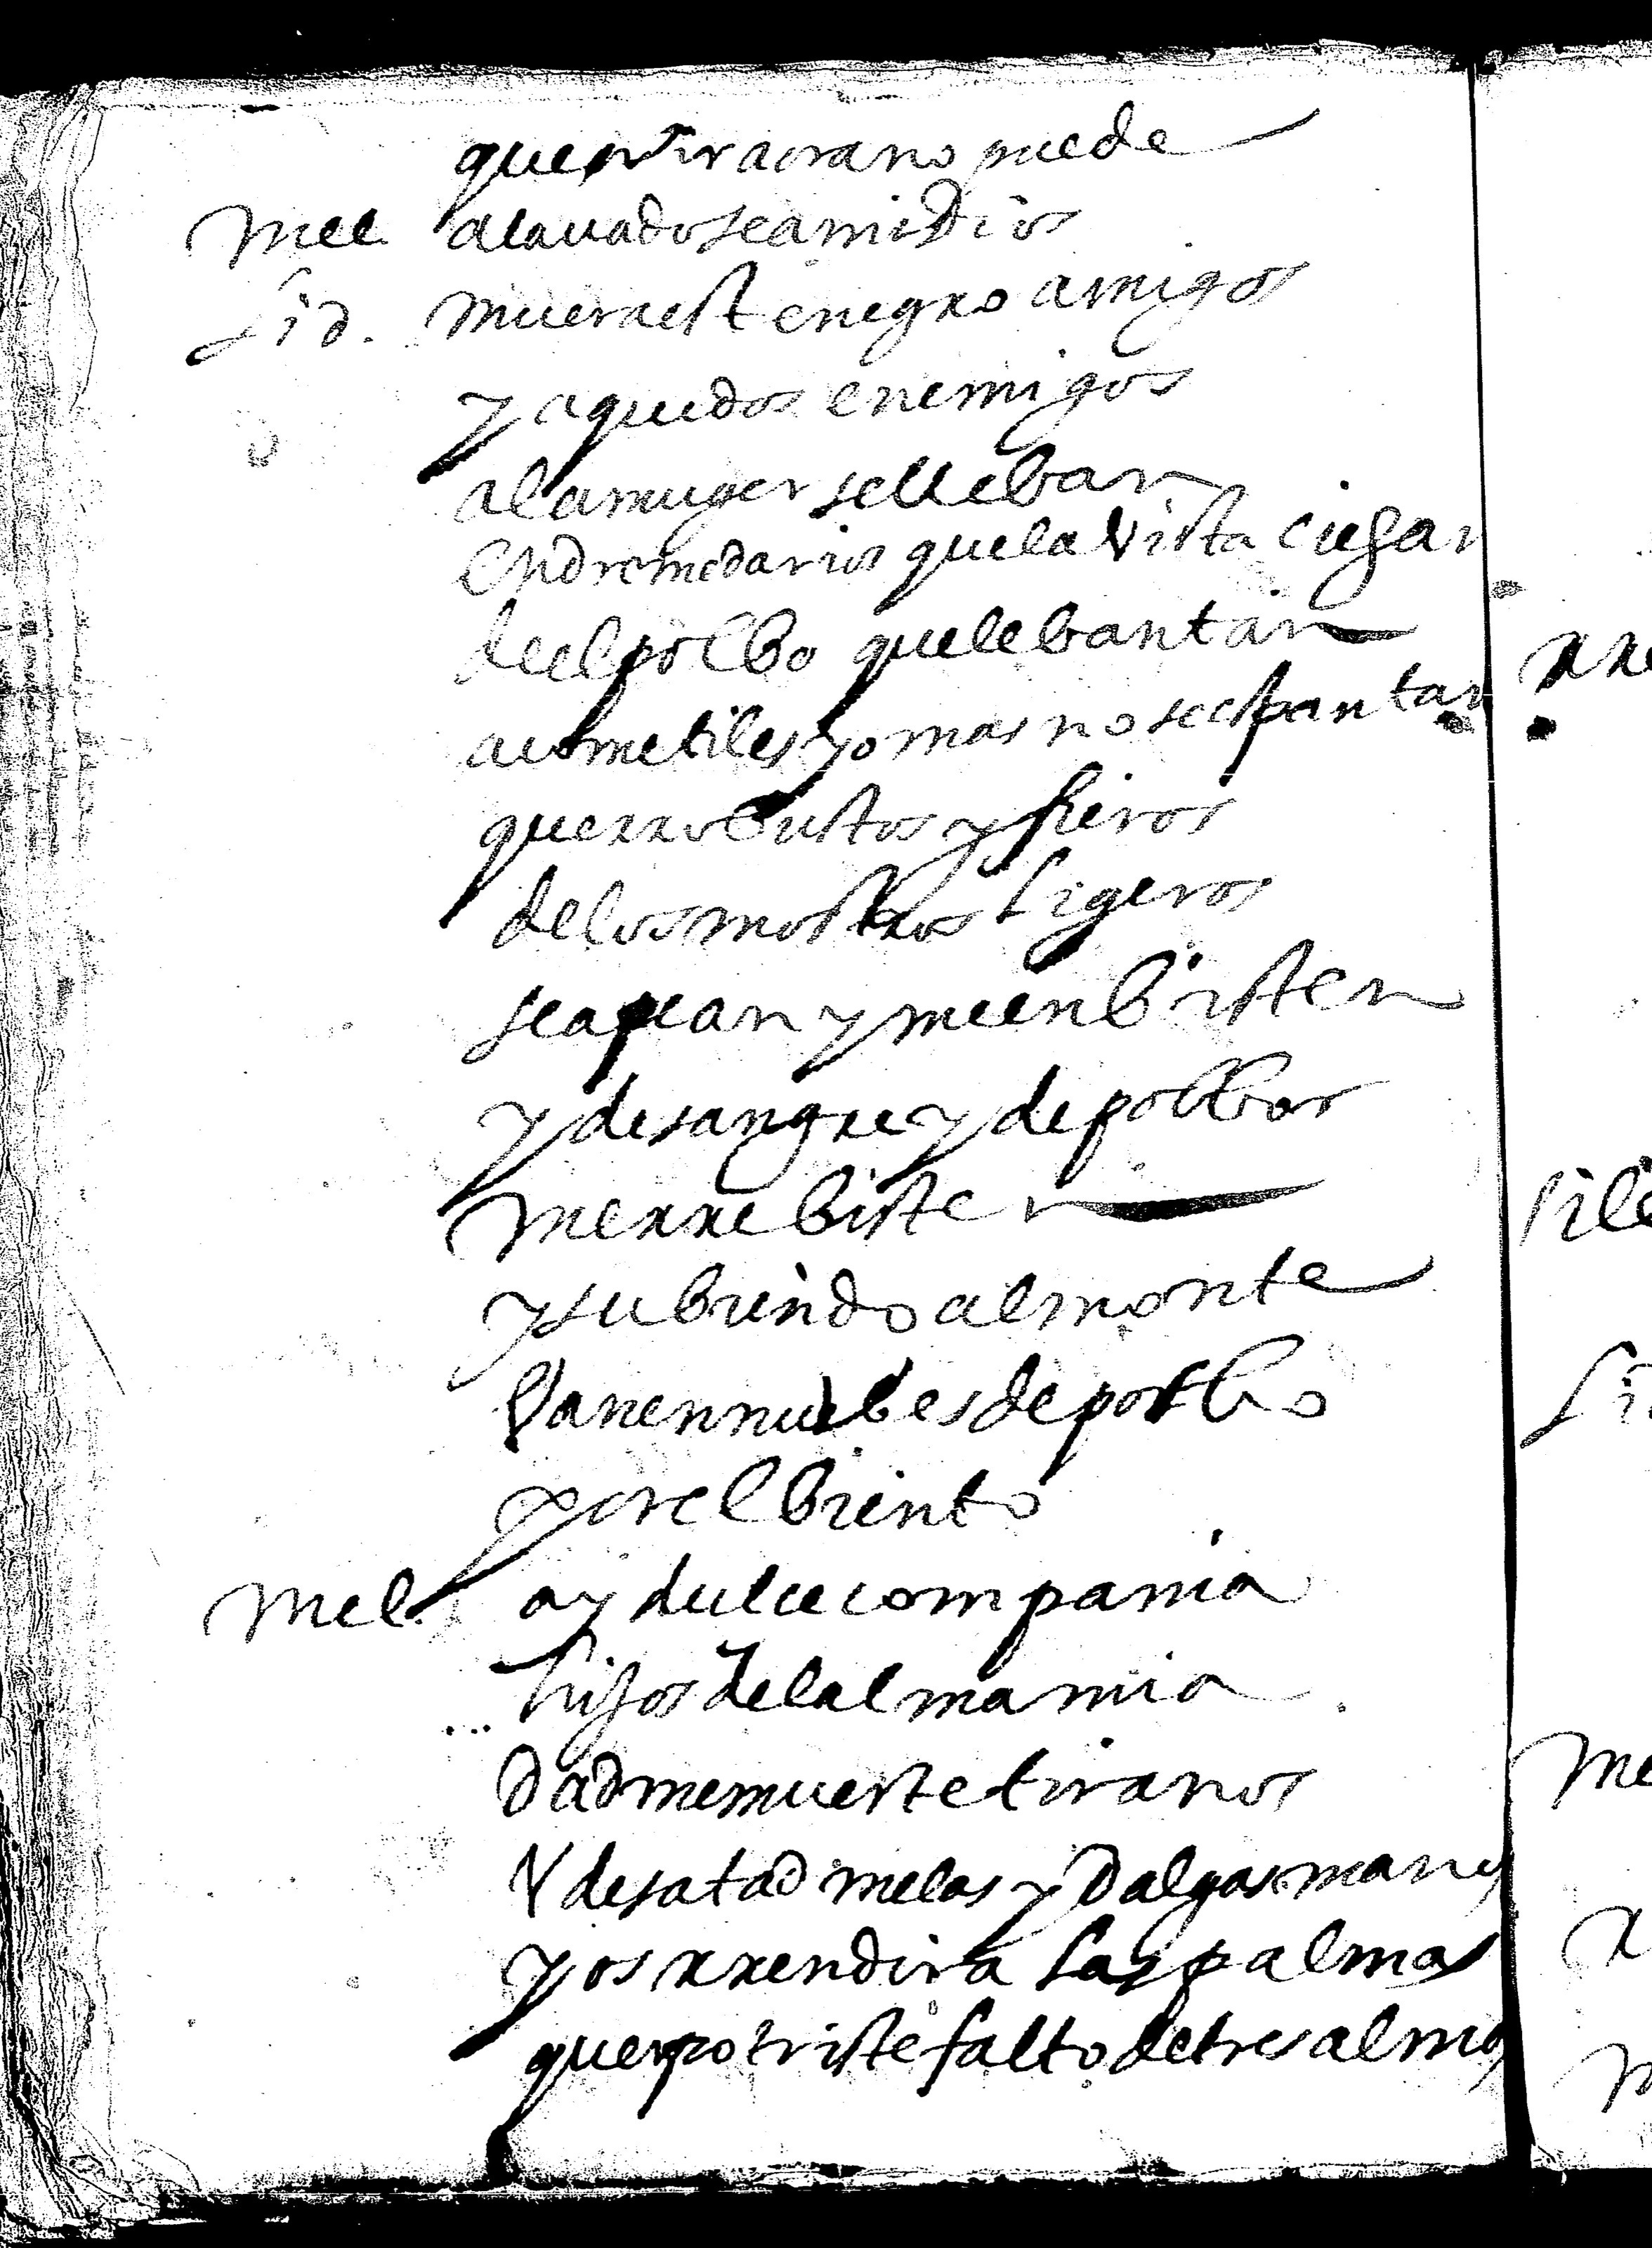 que vivir aora no puede
Mel. alauado sea mi Dios
Lid. muera este negro amigos
y aquedos enemigos
a la muger se lleban
en dromedarios que la vista ciegan
de el polbo que lebantan
acometiles yo mas no se espantan
que rrobustos y fieros
de los mostros ligeros
se apean y me enbisten
y de sangre y de polbos
me rrebisten
y subiendo al monte
van en nubes de polbo
por el biento
Mel. ay dulce compania
hijos del alma mia
Dadme muerte tiranos
Y desatadmelas y Dalgas manos
y os rrendira las palmas
querpo triste falto de tres almas